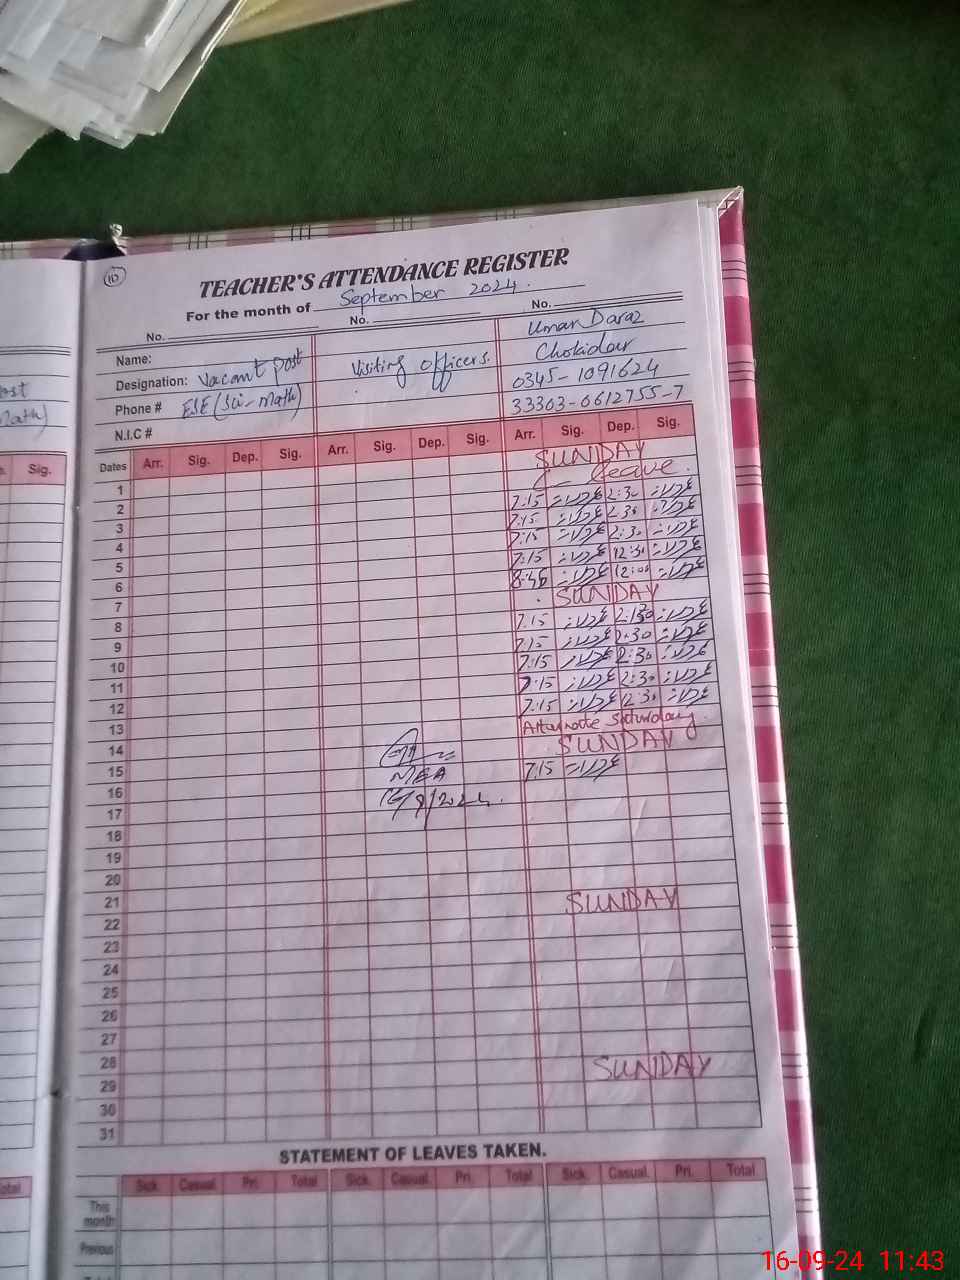 10
TEACHER'S ATTENDANCE REGISTER
For the month of September 2024.
No. No. No.
Name: Umar Daraz
Designation: Vacant post Visiting officers. Chokidar
Phone # ESE (Sci-Math) 0345-1091624
N.I.C # 33303-0612755-7
Dates Arr. Sig. Dep. Sig. Arr. Sig. Dep. Sig. Arr. Sig. Dep. Sig.
1 SUNDAY
2 leave.
3 7:15 2:30
4 7:15 2:30
5 7:15 2:30
6 7:15 12:30
7 8:46 12:00
8 SUNDAY
9 7:15 2:30
10 7:15 2:30
11 7:15 2:30
12 7:15 2:30
13 7:15 12:30
14 Alternate Saturday.
15 SUNDAY
16 MEA 7:15
17 16/9/2024.
18
19
20
21
22 SUNDAY
23
24
25
26
27
28
29 SUNDAY
30
31
STATEMENT OF LEAVES TAKEN.
Sick. Casual. Pri. Total Sick. Casual. Pri. Total Sick. Casual. Pri. Total
This month
Previous
ost
Math)
Sig.
otal
16-09-24 11:43